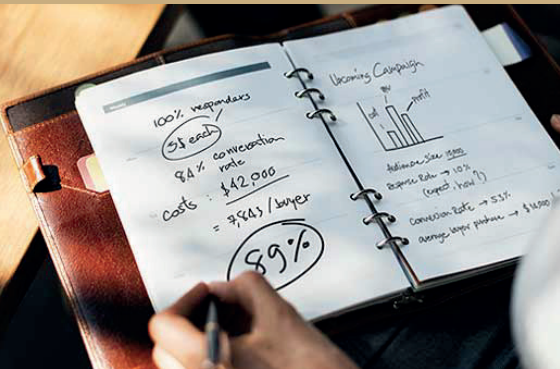 100% responders
5$ each
84% conversation
rate
costs : $42,000
= 7,843 / buyer
89%
Upcoming Campaign
cost
profit
Audience size 10,000
Response Rate → 10%
(expect, how?)
Conversion Rate → 55%
average buyer purchase →